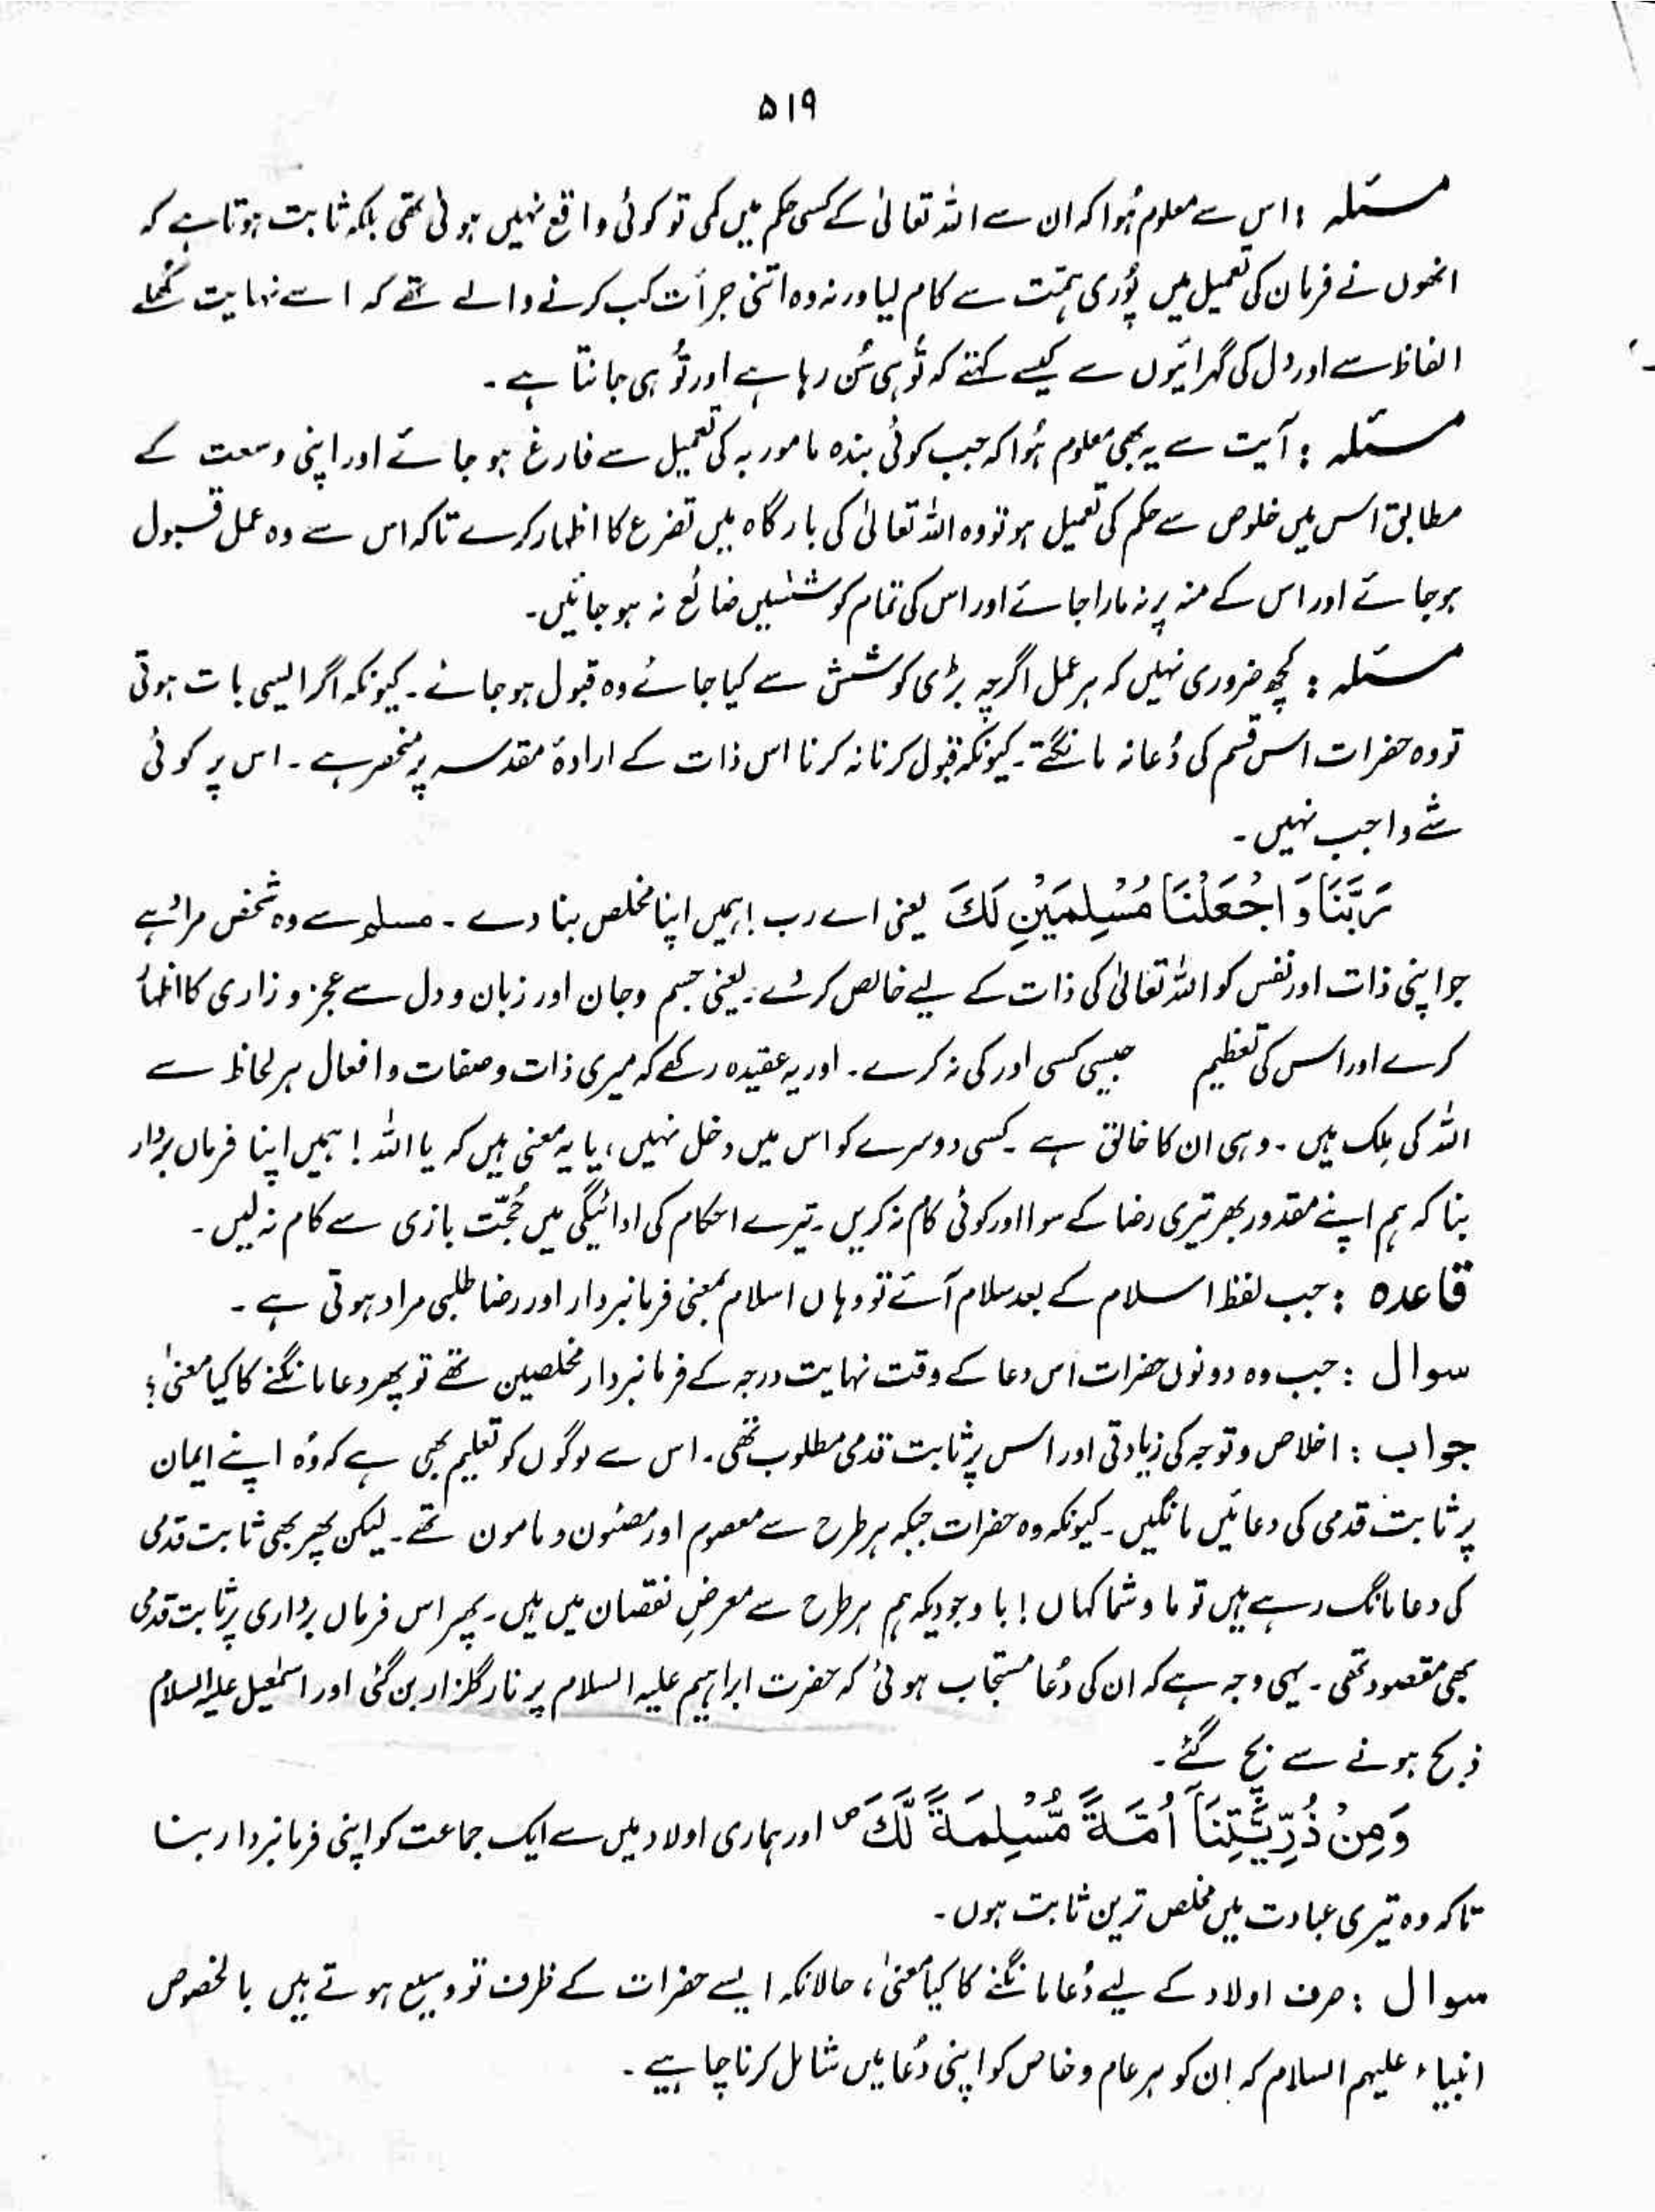 ۵۱۹
مسئلہ : اس سے معلوم ہُوا کہ ان سے اللہ تعالیٰ کے کسی حکم میں کمی تو کوئی واقع نہیں ہوئی تھی بلکہ ثابت ہوتا ہے کہ
انھوں نے فرمان کی تعمیل میں پُوری ہمّت سے کام لیا ورنہ وہ اتنی جرأت کب کرنے والے تھے کہ اسے نہایت کُھلے
الفاظ سے اور دل کی گہرائیوں سے کیسے کہتے کہ تُو ہی سُن رہا ہے اور تُو ہی جانتا ہے ۔
مسئلہ : آیت سے یہ بھی معلوم ہُوا کہ جب کوئی بندہ مامور بہ کی تعمیل سے فارغ ہو جائے اور اپنی وسعت کے
مطابق اس میں خلوص سے حکم کی تعمیل ہو تو وہ اللہ تعالیٰ کی بارگاہ میں تضرع کا اظہار کرے تاکہ اس سے وہ عمل قبول
ہو جائے اور اس کے منہ پر نہ مارا جائے اور اس کی تمام کوششیں ضائع نہ ہو جائیں ۔
مسئلہ : کچھ ضروری نہیں کہ ہر عمل اگرچہ بڑی کوشش سے کیا جائے وہ قبول ہو جائے ۔ کیونکہ اگر ایسی بات ہوتی
تو وہ حضرات اس قسم کی دُعا نہ مانگتے ۔ کیونکہ قبول کرنا نہ کرنا اس ذات کے ارادۂ مقدسہ پر منحصر ہے ۔ اس پر کوئی
شے واجب نہیں ۔
رَبَّنَا وَاجْعَلْنَا مُسْلِمَيْنِ لَكَ یعنی اے رب ! ہمیں اپنا مخلص بنا دے ۔ مسلم سے وہ شخص مراد ہے
جو اپنی ذات اور نفس کو اللہ تعالیٰ کی ذات کے لیے خالص کر دے ۔ یعنی جسم و جان اور زبان و دل سے عجز و زاری کا اظہار
کرے اور اس کی تعظیم جیسی کسی اور کی نہ کرے ۔ اور یہ عقیدہ رکھے کہ میری ذات و صفات و افعال ہر لحاظ سے
اللہ کی مِلک ہیں ۔ وہی ان کا خالق ہے ۔ کسی دوسرے کو اس میں دخل نہیں ، یا یہ معنی ہیں کہ یا اللہ ! ہمیں اپنا فرماں بردار
بنا کہ ہم اپنے مقدور بھر تیری رضا کے سوا اور کوئی کام نہ کریں ۔ تیرے احکام کی ادائیگی میں حُجّت بازی سے کام نہ لیں ۔
قاعدہ : جب لفظ اسلام کے بعد سلام آئے تو وہاں اسلام بمعنی فرمانبردار اور رضا طلبی مراد ہوتی ہے ۔
سوال : جب وہ دونوں حضرات اس دعا کے وقت نہایت درجہ کے فرمانبردار مخلصین تھے تو پھر دعا مانگنے کا کیا معنیٰ ؟
جواب : اخلاص و توجہ کی زیادتی اور اس پر ثابت قدمی مطلوب تھی ۔ اس سے لوگوں کو تعلیم بھی ہے کہ وُہ اپنے ایمان
پر ثابت قدمی کی دعائیں مانگیں ۔ کیونکہ وہ حضرات جبکہ ہر طرح سے معصوم اور مصئون و مامون تھے ۔ لیکن پھر بھی ثابت قدمی
کی دعا مانگ رہے ہیں تو ما و شما کہاں ! باوجودیکہ ہم ہر طرح سے معرضِ نقصان میں ہیں ۔ پھر اس فرماں برداری پر ثابت قدمی
بھی مقصود تھی ۔ یہی وجہ ہے کہ ان کی دُعا مستجاب ہوئی کہ حضرت ابراہیم علیہ السلام پر نار گلزار بن گئی اور اسمٰعیل علیہ السلام
ذبح ہونے سے بچ گئے ۔
وَمِنْ ذُرِّيَّتِنَآ اُمَّةً مُّسْلِمَةً لَّكَ ص اور ہماری اولاد میں سے ایک جماعت کو اپنی فرمانبردار بنا
تاکہ وہ تیری عبادت میں مخلص ترین ثابت ہوں ۔
سوال : صرف اولاد کے لیے دُعا مانگنے کا کیا معنیٰ ، حالانکہ ایسے حضرات کے ظرف تو وسیع ہوتے ہیں بالخصوص
انبیاء علیہم السلام کہ ان کو ہر عام و خاص کو اپنی دُعا میں شامل کرنا چاہیے ۔